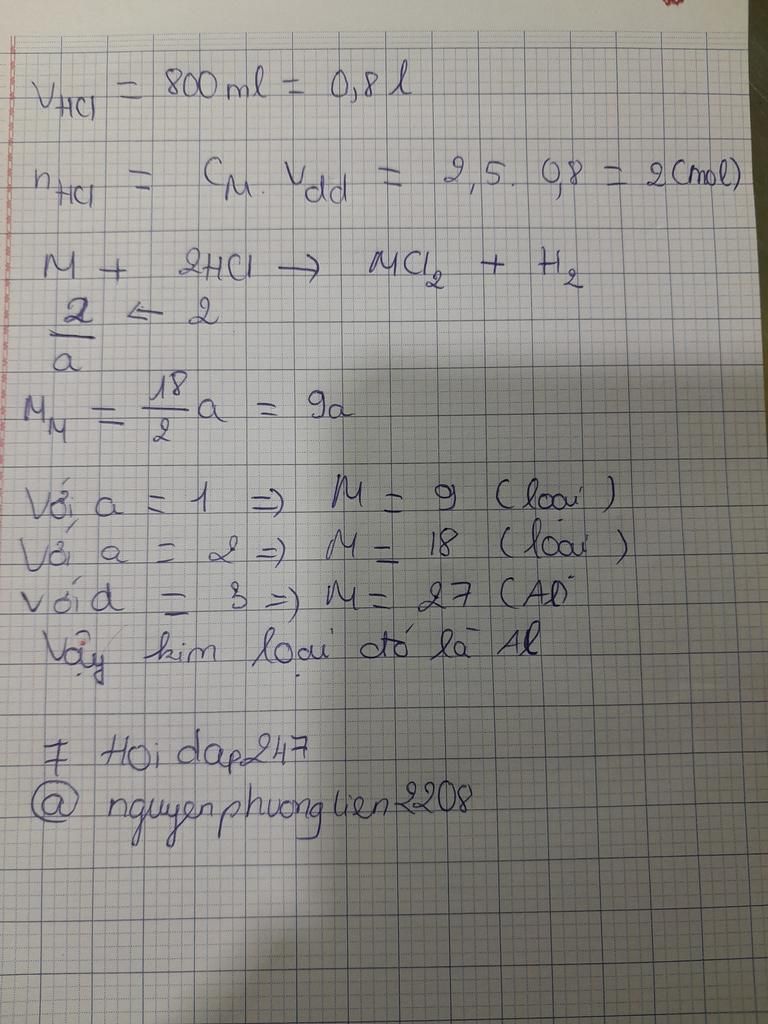 V_HCl = 800 ml = 0,8 l
n_HCl = C_M . V_dd = 2,5 . 0,8 = 2 (mol)
M + 2HCl → MCl₂ + H₂
2/a ← 2
M_M = 18/2 a = 9a
Với a = 1 => M = 9 (loại)
Với a = 2 => M = 18 (loại)
Với a = 3 => M = 27 (Al)
Vậy kim loại đó là Al
# Hoidap247
@ nguyenphuonglien2208